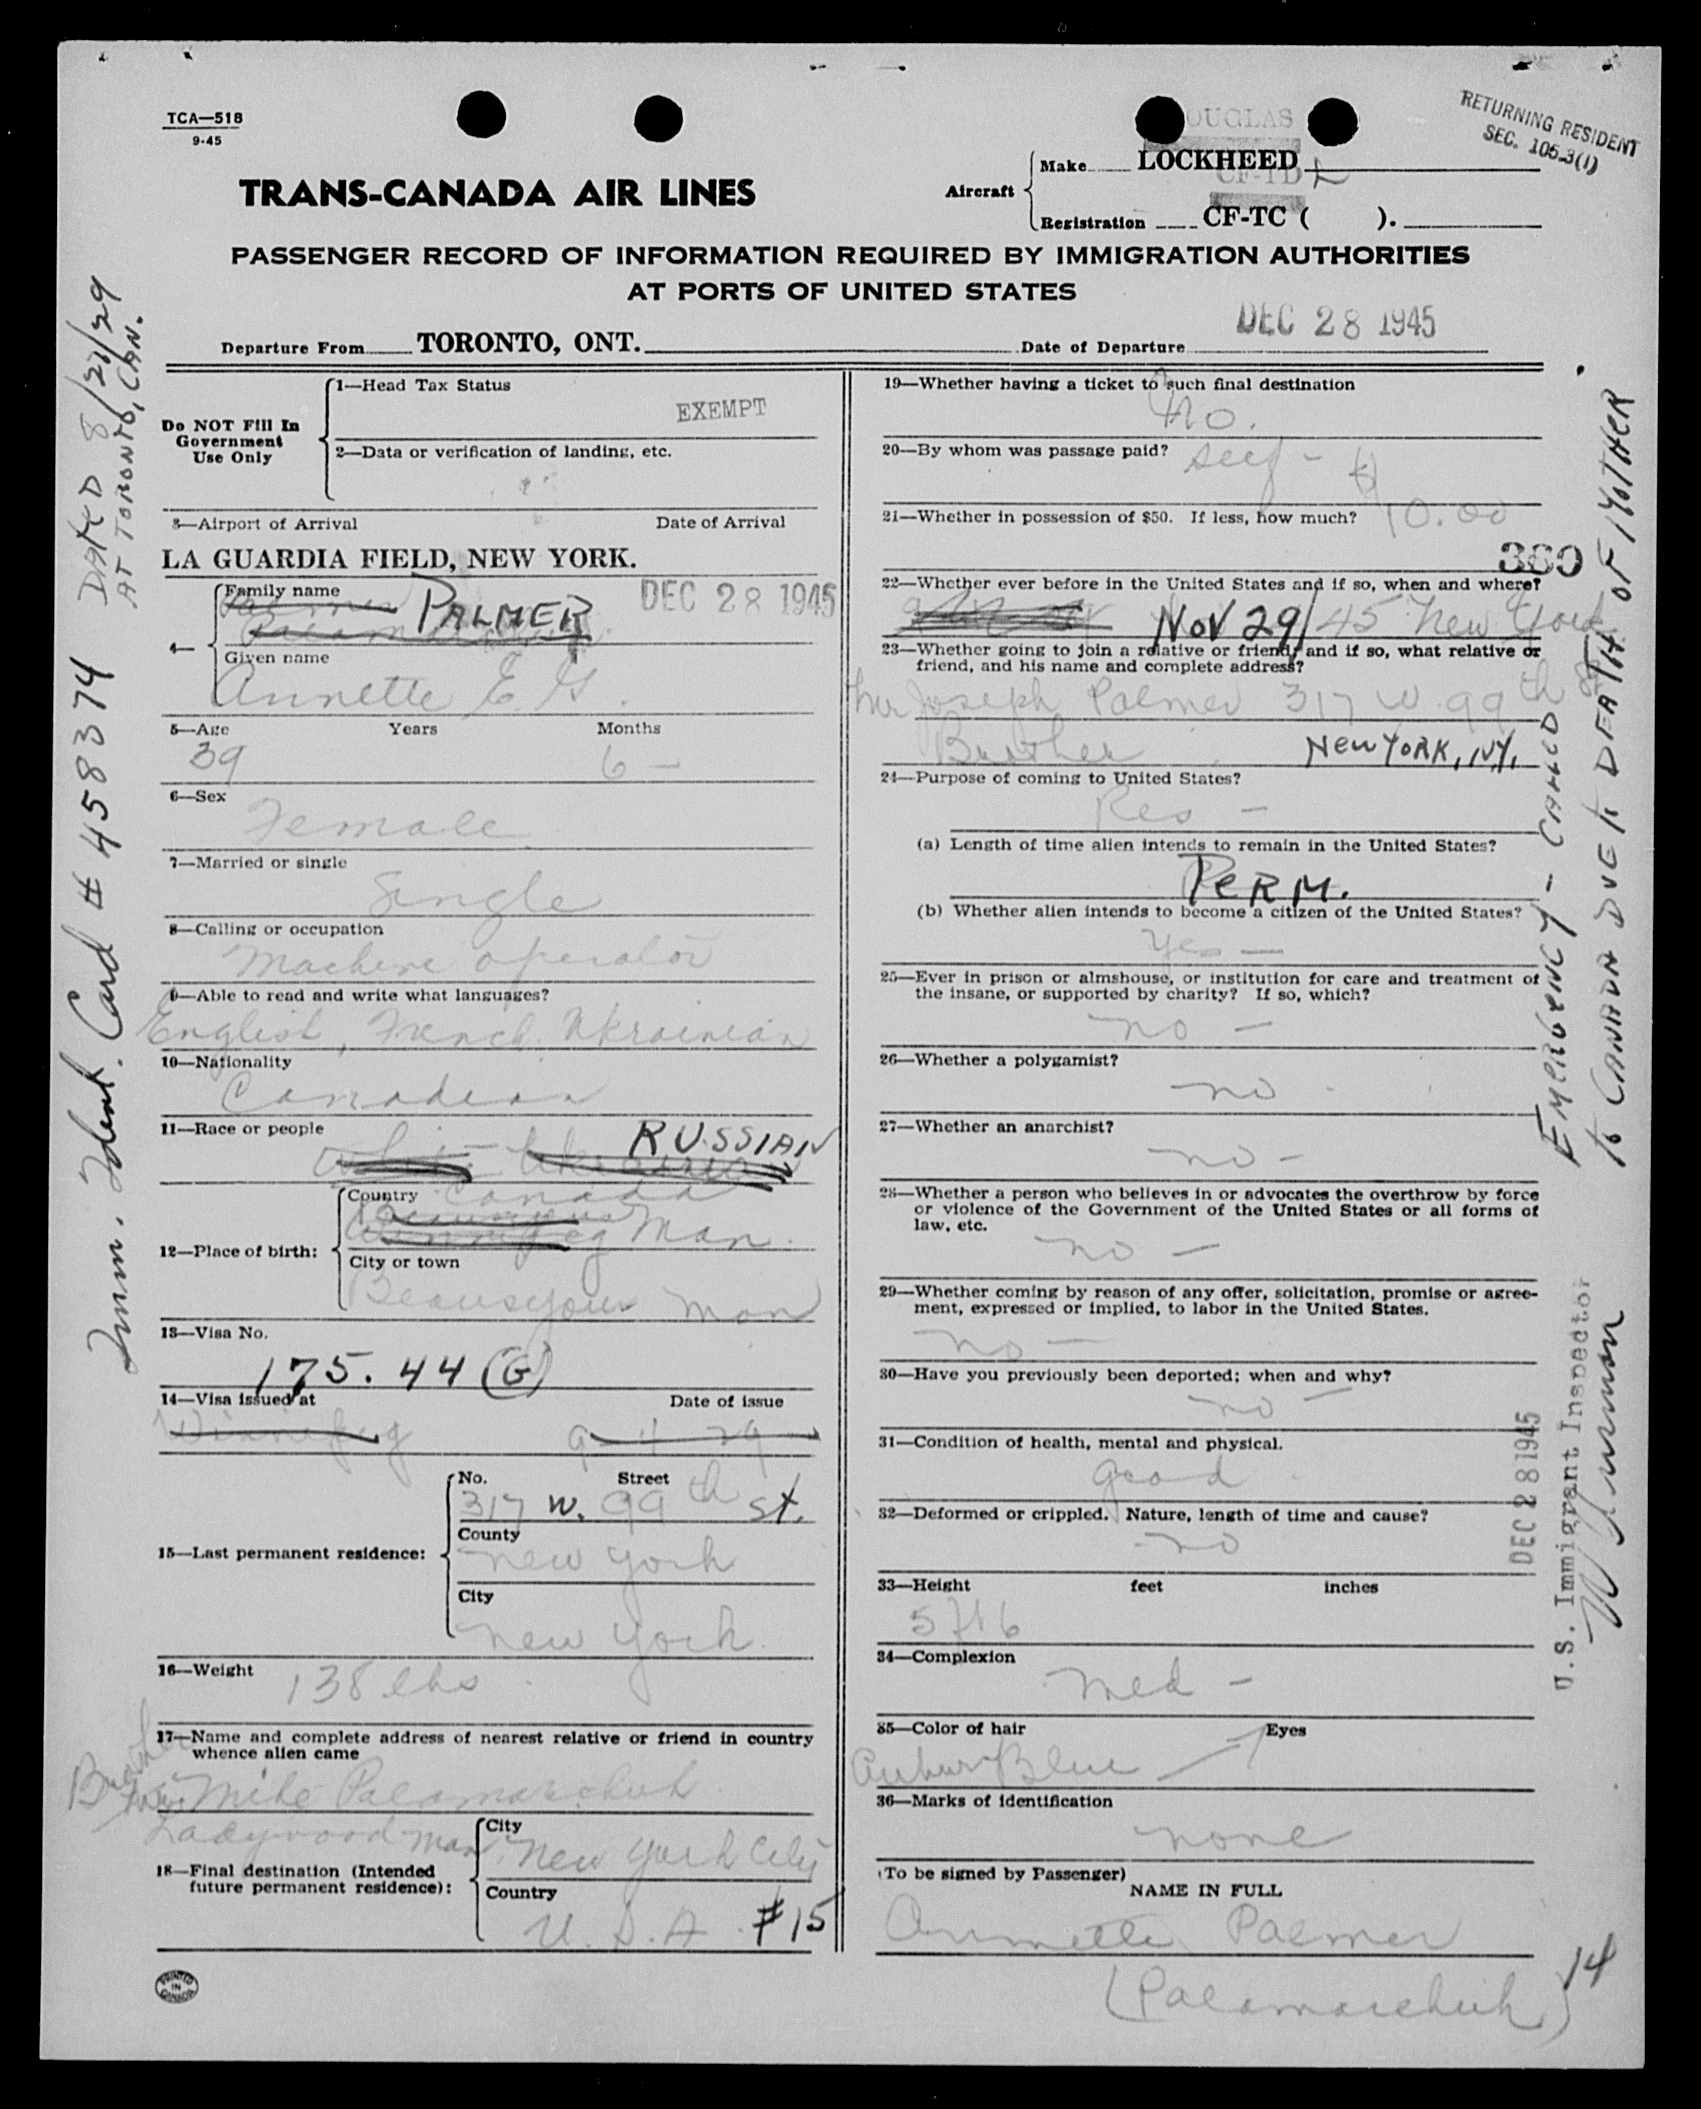 TCA—518
9-45
DOUGLAS
RETURNING RESIDENT
SEC. 105.3(1)
TRANS-CANADA AIR LINES
Aircraft
Make LOCKHEED
CF-TD
Registration CF-TC ( ).
PASSENGER RECORD OF INFORMATION REQUIRED BY IMMIGRATION AUTHORITIES
AT PORTS OF UNITED STATES
Departure From TORONTO, ONT. Date of Departure DEC 28 1945
Do NOT Fill In
Government
Use Only
1—Head Tax Status
EXEMPT
2—Data or verification of landing, etc.
3—Airport of Arrival Date of Arrival
LA GUARDIA FIELD, NEW YORK.
DEC 28 1945
4—
Family name
PALMER
Given name
Annette E. G.
5—Age Years Months
39 6 —
6—Sex
Female
7—Married or single
Single
8—Calling or occupation
Machine operator
9—Able to read and write what languages?
English, French, Ukrainian
10—Nationality
Canadian
11—Race or people
White Ukrainian RUSSIAN
12—Place of birth:
Country Canada
Beausejour
Winnipeg Man.
City or town
Beausejour Man
13—Visa No.
175.44 (G)
14—Visa issued at Date of issue
Winnipeg 9-4-29
15—Last permanent residence:
No. Street
317 W. 99th St.
County
New York
City
New York.
16—Weight 138 lbs.
17—Name and complete address of nearest relative or friend in country
whence alien came
Brother
Mike Palamarchuk
Ladywood Man.
18—Final destination (Intended
future permanent residence):
City
New York City
Country
U.S.A. #15
PRINTED IN CANADA
19—Whether having a ticket to such final destination
no.
20—By whom was passage paid? self -
21—Whether in possession of $50. If less, how much? 10.00
360
22—Whether ever before in the United States and if so, when and where?
NOV 29/45 New York
23—Whether going to join a relative or friend, and if so, what relative or
friend, and his name and complete address?
Joseph Palmer 317 W. 99th St
Brother NEW YORK, N.Y.
24—Purpose of coming to United States?
Res —
(a) Length of time alien intends to remain in the United States?
PERM.
(b) Whether alien intends to become a citizen of the United States?
Yes —
25—Ever in prison or almshouse, or institution for care and treatment of
the insane, or supported by charity? If so, which?
no —
26—Whether a polygamist?
no -
27—Whether an anarchist?
no -
28—Whether a person who believes in or advocates the overthrow by force
or violence of the Government of the United States or all forms of
law, etc.
no —
29—Whether coming by reason of any offer, solicitation, promise or agree-
ment, expressed or implied, to labor in the United States.
no —
30—Have you previously been deported; when and why?
no —
31—Condition of health, mental and physical.
good
32—Deformed or crippled. Nature, length of time and cause?
no
33—Height feet inches
5 ft 6
34—Complexion
Med -
35—Color of hair Eyes
Auburn Blue
36—Marks of identification
none
(To be signed by Passenger)
NAME IN FULL
Annette Palmer
(Palamarchuk)
14
Imm. Ident. Card # 458374 DATED 8/21/29
AT TORONTO, CAN.
EMERGENCY - CALLED
TO CANADA DUE to DEATH OF MOTHER
DEC 28 1945
U.S. Immigrant Inspector